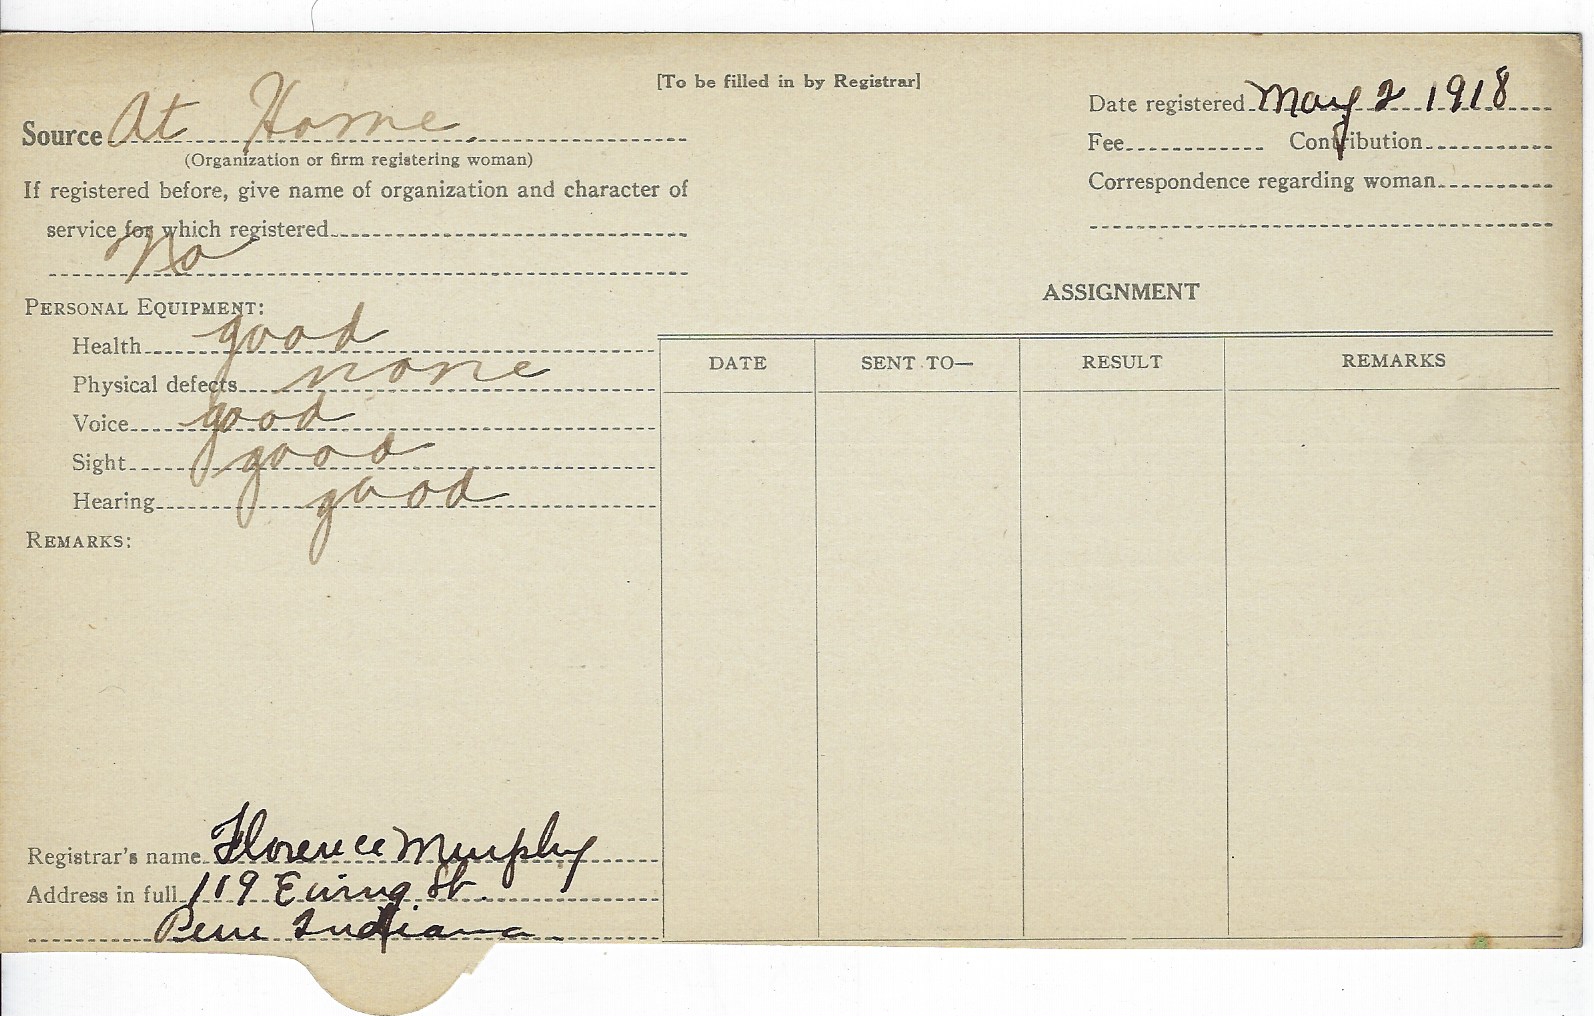 [To be filled in by Registrar]
Source At Home.
(Organization or firm registering woman)
If registered before, give name of organization and character of
service for which registered
No
PERSONAL EQUIPMENT:
Health good
Physical defects none
Voice good
Sight good
Hearing good
REMARKS:
Registrar's name Florence Murphy
Address in full 119 Ewing St.
Peru Indiana
Date registered May 2 1918
Fee Contribution
Correspondence regarding woman
ASSIGNMENT
DATE SENT TO— RESULT REMARKS